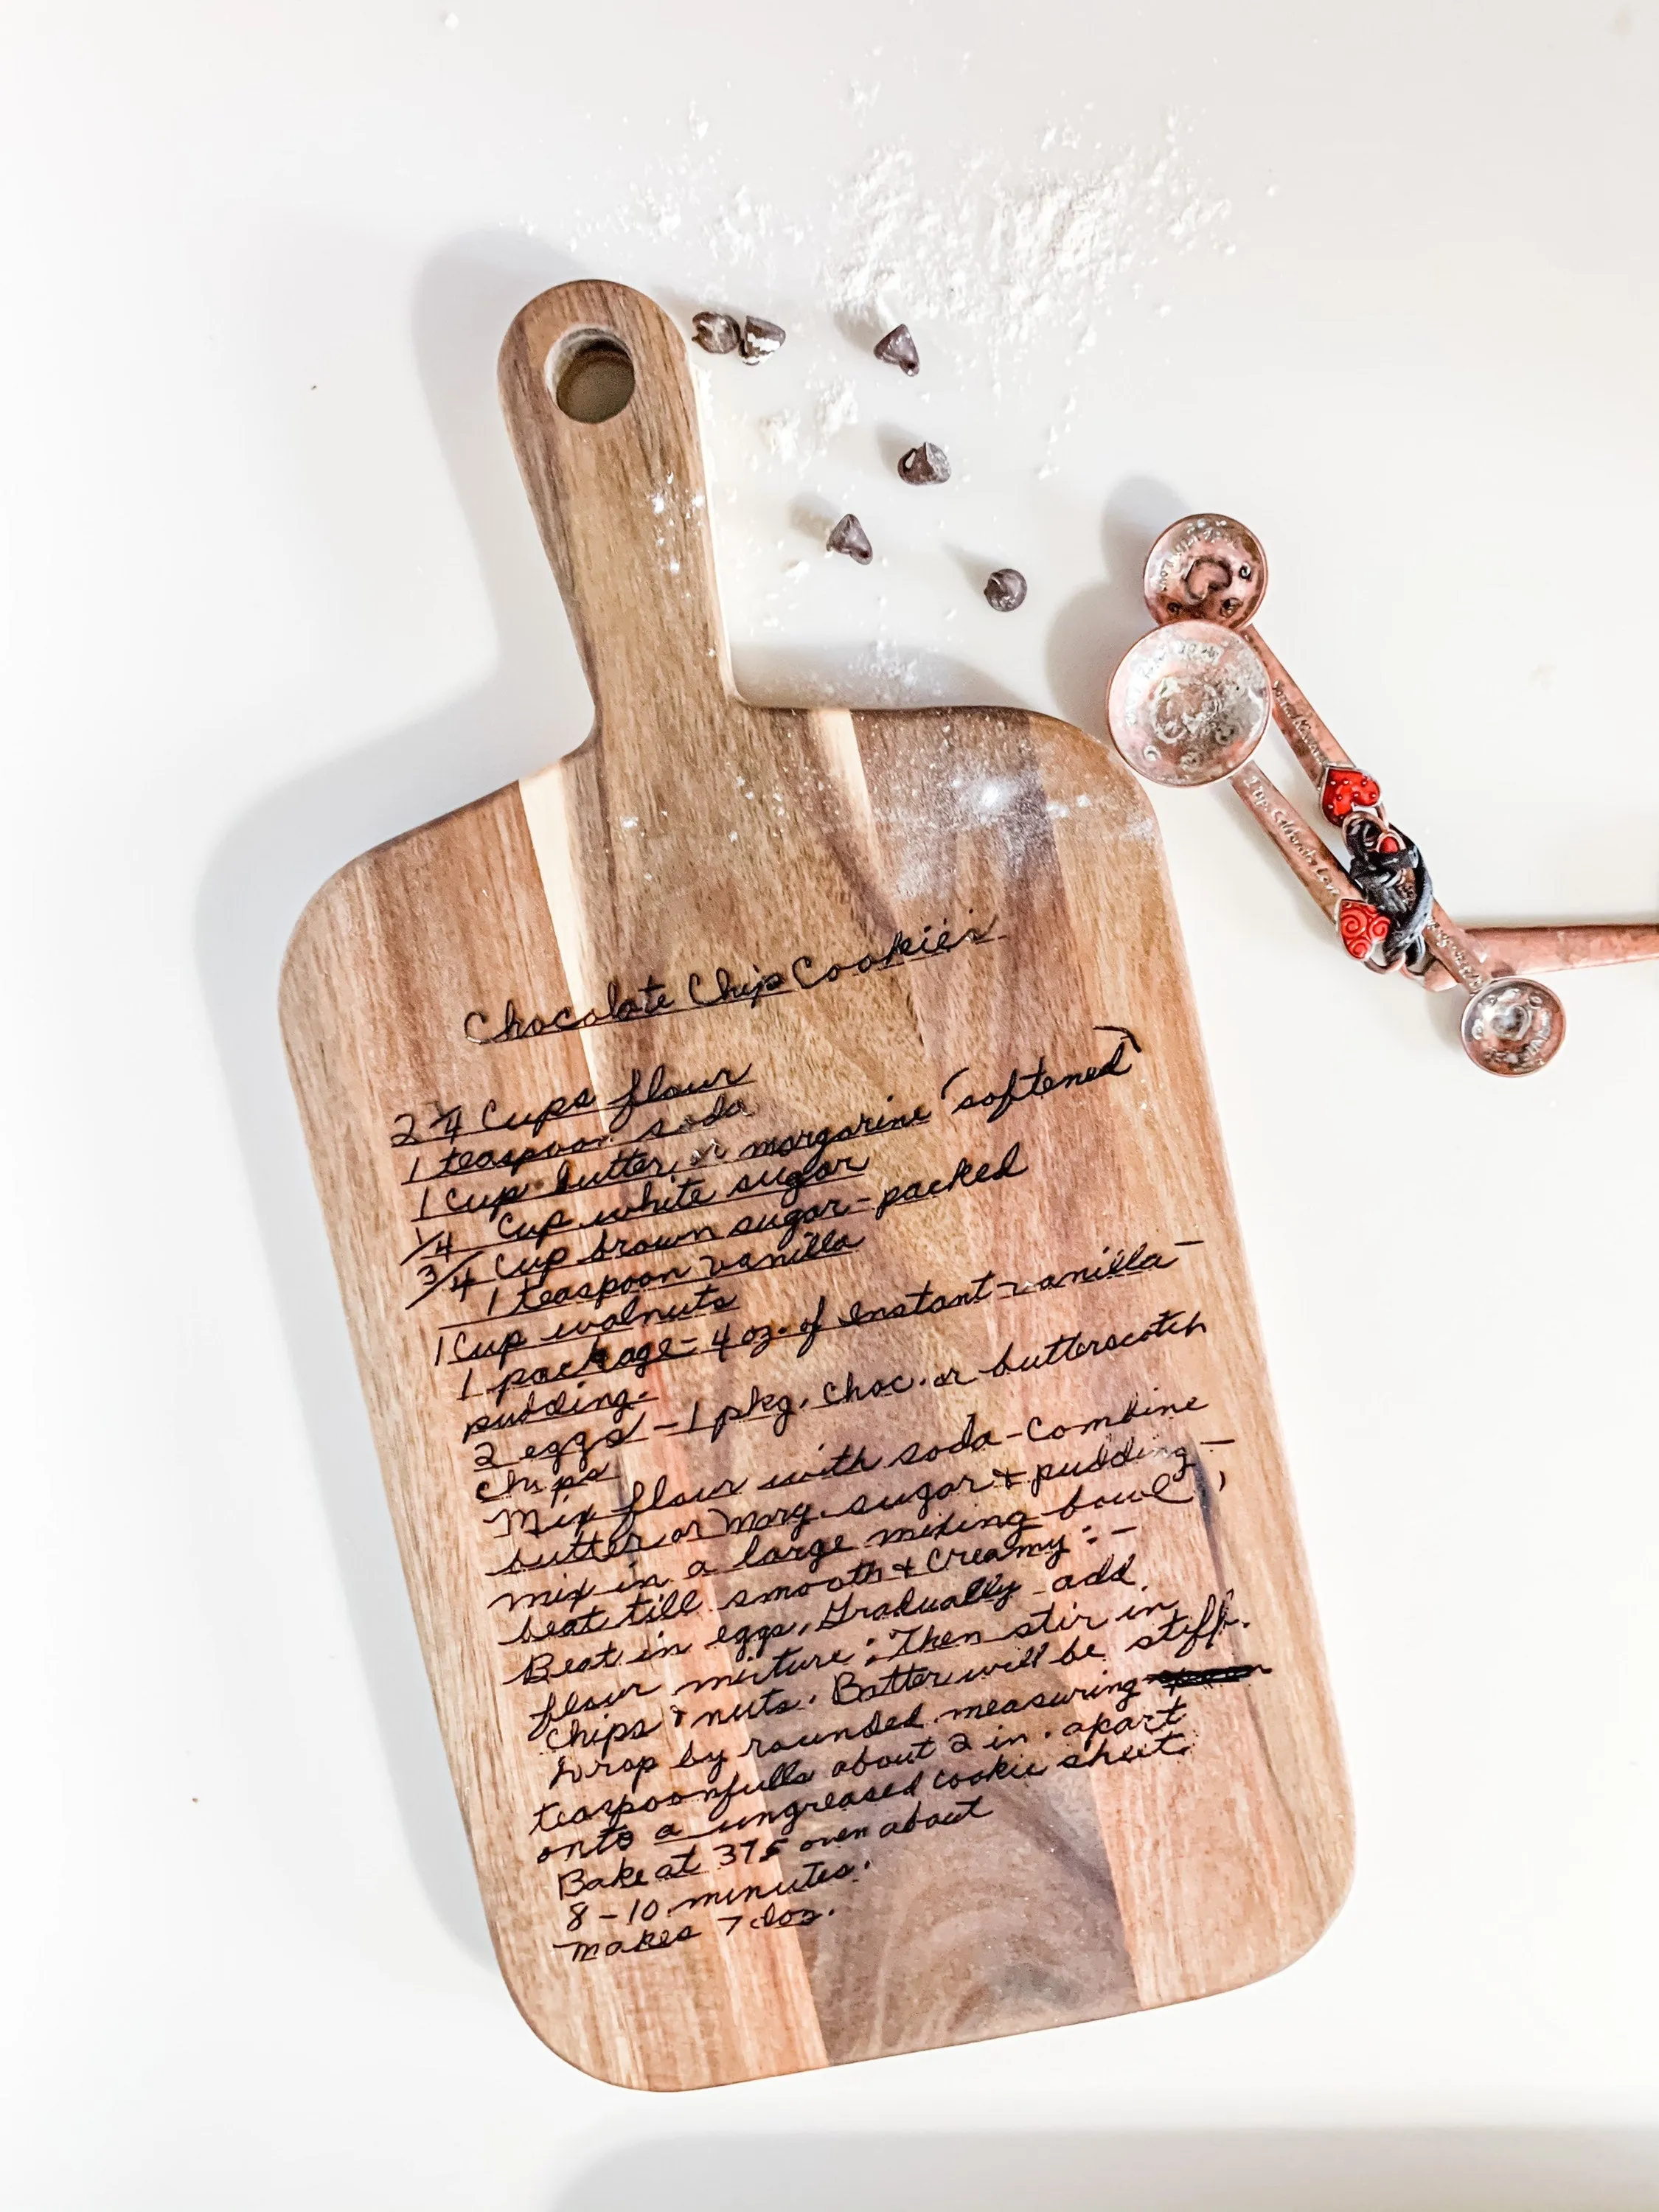 Chocolate Chip Cookies
2 1/4 Cups flour
1 teaspoon soda
1 Cup butter or margarine (softened)
1/4 Cup white sugar
3/4 Cup brown sugar - packed
1 teaspoon vanilla
1 Cup walnuts
1 package - 4 oz. of Instant vanilla
pudding.
2 eggs - 1 pkg. Choc. or butterscotch
chips
Mix flour with soda - Combine
butter or Marg. sugar & pudding -
mix in a large mixing bowl,
beat till smooth & Creamy : -
Beat in eggs, Gradually add
flour mixture ; Then stir in
Chips & nuts. Batter will be stiff.
Drop by rounded measuring
teaspoonfulls about 2 in. apart
onto a ungreased cookie sheet.
Bake at 375 oven about
8 - 10 minutes.
makes 7 doz.